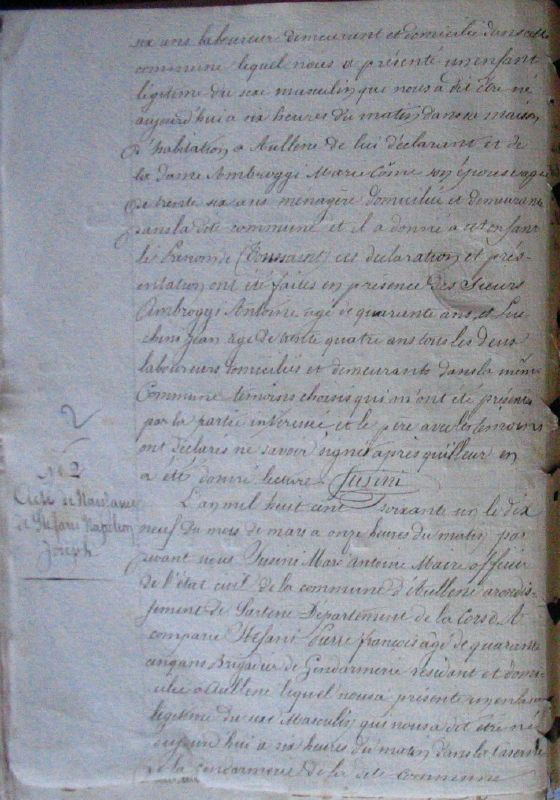 six ans laboureur demeurant et domicilié dans cette
commune lequel nous a présenté un enfant
légitime du sexe masculin que nous a dit être né
aujourd'hui a six heures du matin dans sa maison
d'habitation a Aullene de lui déclarant et de
la Dame Ambroggi Marie son épouse agée
de trente six ans menagère domiciliée et demeurant
dans la dite commune et il a donné a cet enfant
le Prénom de (Toussaint) ces declaration et prés-
entation ont été faites en presence des Sieurs
Ambroggi Antoine agé de quarante ans, et Luc
chini Jean agé de trente quatre ans tous les deux
laboureurs domiciliés et demeurants dans la même
Commune temoins choisis qui m'ont été présentés
par la partie interessée et le père avec les temoins
ont déclarés ne savoir signer après qu'il leur en
a été donné lecture. Susini
2
N° 2
Acte de Naissance
de Stefani Napoleon
Joseph
L'an mil huit cent soixante un le dix
neuf du mois de mars a onze heures du matin par
devant nous Susini Marc Antoine Maire officier
de l'état civil de la commune d'Aullene arondis-
sement de Sartene Departement de la Corse A
comparu Stefani Pierre François agé de quarante
cinq ans Brigadier de Gendarmerie résidant et domi-
cilié a Aullene lequel nous a présenté un enfant
legitime du sexe Masculin qui nous a dit être né
aujourd'hui a six heures du matin dans la caserne
de la gendarmerie de la dite commune